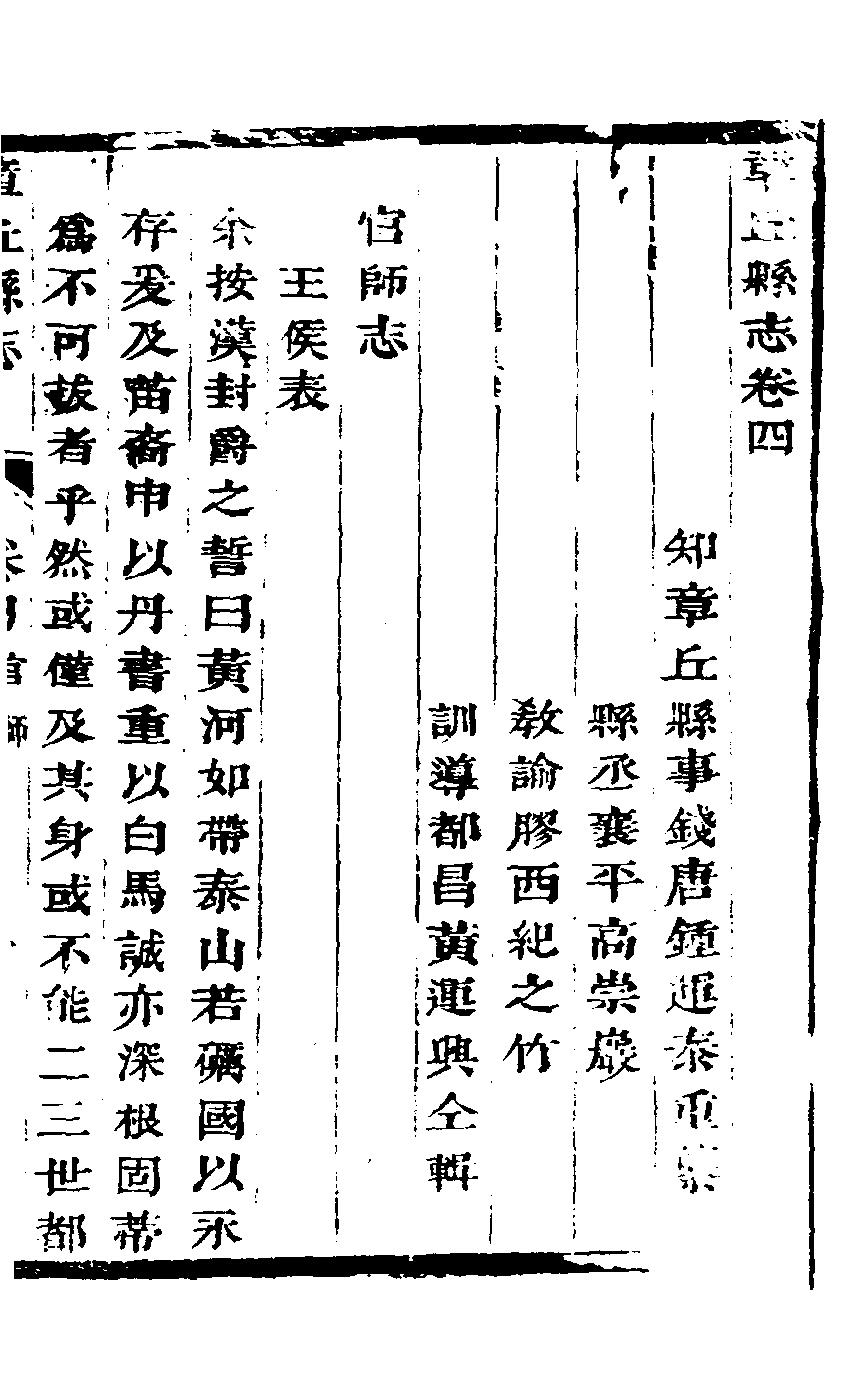 章丘縣志卷四
知章丘縣事錢唐鍾運泰重纂
縣丞襄平高崇巖
教諭膠西紀之竹
訓導都昌黃運興仝輯
官師志
王侯表
余按漢封爵之誓曰黃河如帶泰山若礪國以永
存爰及苗裔申以丹書重以白馬誠亦深根固蒂
爲不可拔者乎然或僅及其身或不能二三世都
章丘縣志 卷四官師